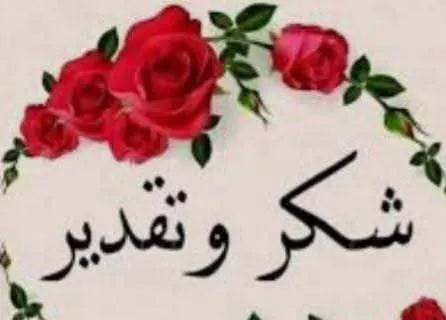 شكر وتقدير